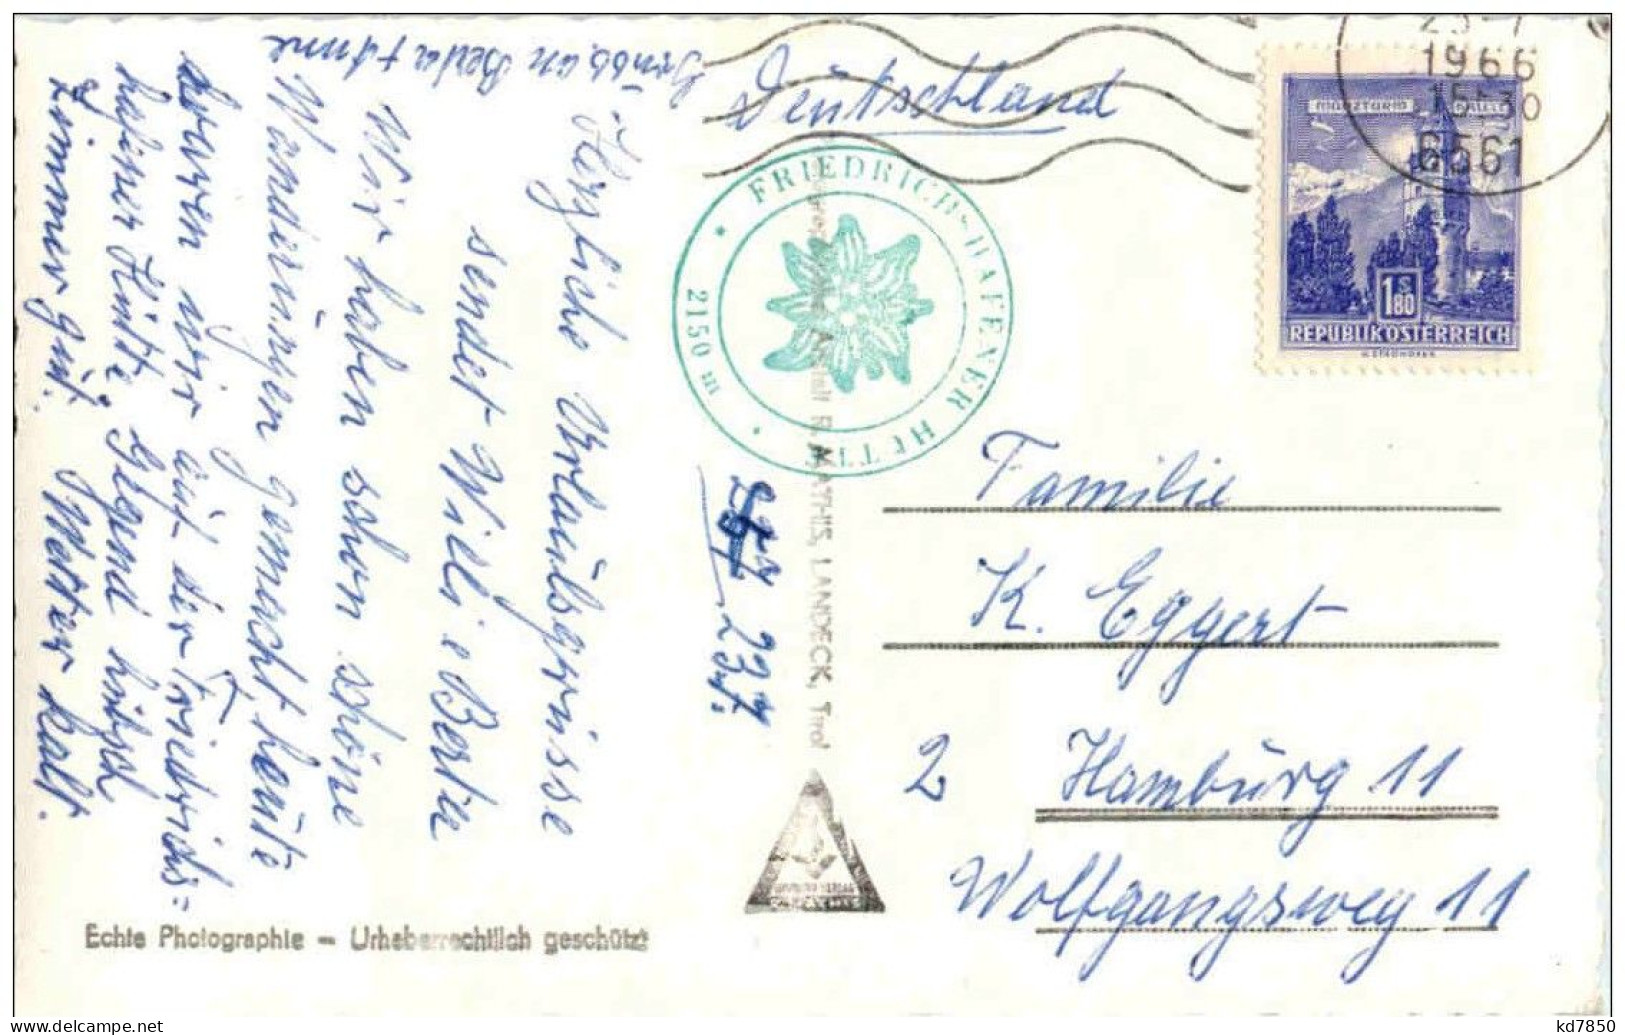 Herzliche Urlaubsgrüsse
sendet Willi & Berta
Wir haben schon schöne
Wanderungen gemacht, heute
waren wir auf der Friedrichs=
hafner Hütte, Gegend hübsch
Zimmer gut. Wetter kalt.
Gruss an Berta + Anne
23.7.
Echte Photographie – Urheberrechtlich geschützt
MATHIS, LANDECK, Tirol
FRIEDRICHSHAFENER HÜTTE
2150 m
Deutschland
1966
6561
MÜNZTURM HALL
S
1.80
REPUBLIK ÖSTERREICH
Familie
K. Eggert
2 Hamburg 11
Wolfgangsweg 11
kd7850